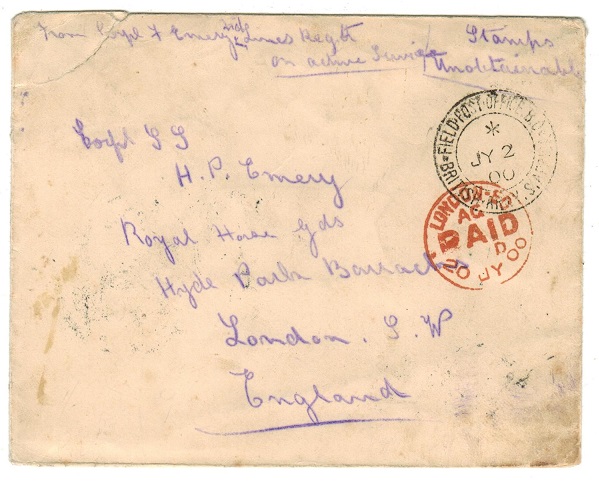 From Corpl F Emery 2nd Lincs Regt
on active Service
Stamps
Unobtainable
FIELD·POST·OFFICE
BRITISH·ARMY
*
JY 2
00
LONDON
AG
PAID
JY 00
Corpl SS
H. P. Emery
Royal Horse Gds
Hyde Park Barracks
London. S. W
England